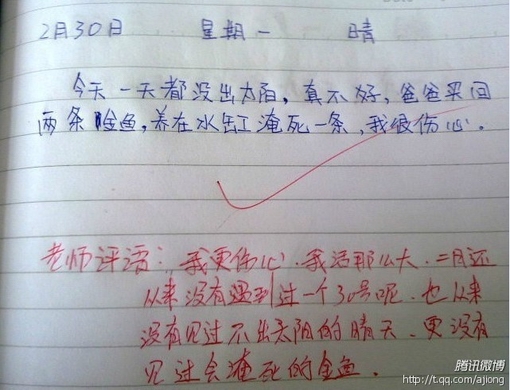 2月30日 星期一 晴
今天一天都没出太阳，真不好，爸爸买回
两条金鱼，养在水缸淹死一条，我很伤心。
老师评语：我更伤心．我活那么大．二月还
从来没有遇到过一个30号呢．也从来
没有见过不出太阳的晴天．更没有
见过会淹死的金鱼．
腾讯微博
http://t.qq.com/ajiong